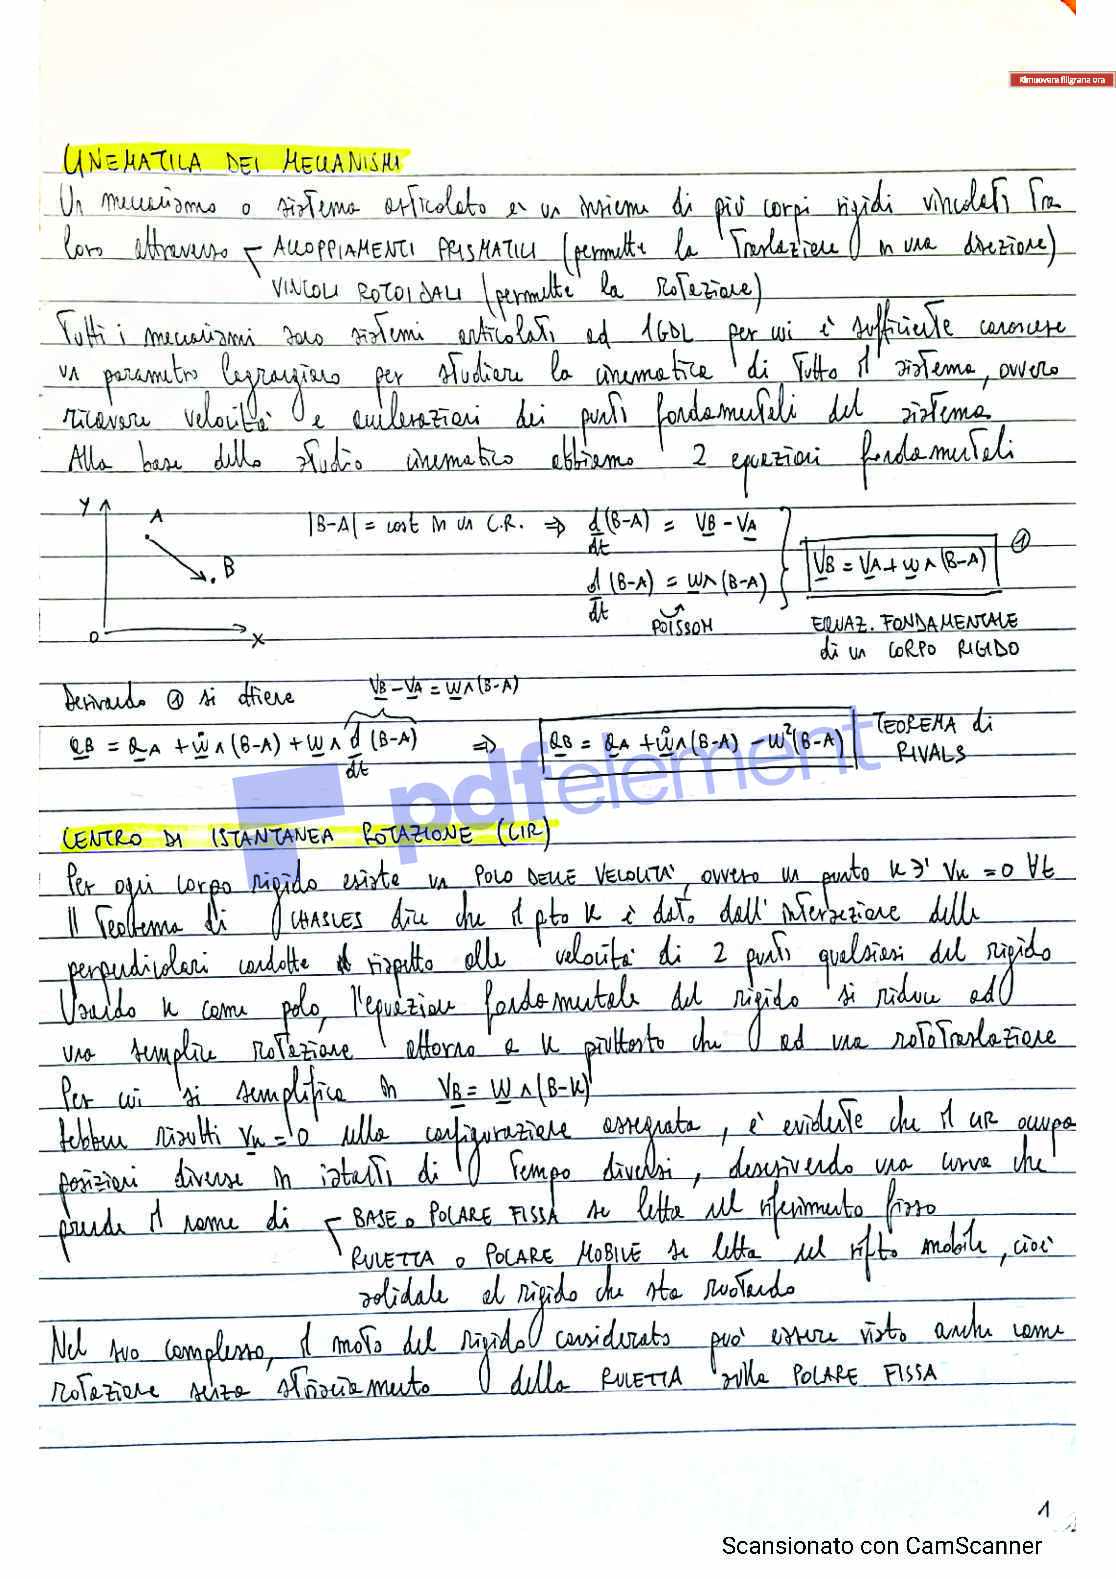 Rimuovere filigrana ora
CINEMATICA DEI MECCANISMI
Un meccanismo o sistema articolato è un insieme di più corpi rigidi vincolati tra
loro attraverso - ACCOPPIAMENTI PRISMATICI (permette la traslazione in una direzione)
VINCOLI ROTOIDALI (permette la rotazione)
Tutti i meccanismi sono sistemi articolati ad 1GDL per cui è sufficiente conoscere
un parametro lagrangiano per studiare la cinematica di tutto il sistema, ovvero
ricavare velocità e accelerazioni dei punti fondamentali del sistema
Alla base dello studio cinematico abbiamo 2 equazioni fondamentali
Y A B O X
|B-A| = cost in un C.R. ⇒ d/dt (B-A) = VB - VA
d/dt (B-A) = ω∧(B-A)
POISSON
VB = VA + ω∧(B-A) ①
EQUAZ. FONDAMENTALE
di un CORPO RIGIDO
Derivando ① si ottiene VB - VA = ω∧(B-A)
aB = aA + ω̇∧(B-A) + ω∧ d/dt (B-A) ⇒ aB = aA + ω̇∧(B-A) - ω²(B-A) TEOREMA di
RIVALS
pdfelement
CENTRO DI ISTANTANEA ROTAZIONE (CIR)
Per ogni corpo rigido esiste un POLO DELLE VELOCITA', ovvero un punto K ∋' VK = 0 ∀t
Il teorema di CHASLES dice che il pto K è dato dall'intersezione delle
perpendicolari condotte rispetto alle velocità di 2 punti qualsiasi del rigido
Usando K come polo, l'equazione fondamentale del rigido si riduce ad
una semplice rotazione attorno a K piuttosto che ad una rototraslazione
Per cui si semplifica in VB = ω∧(B-K)
Sebbene risulti VK = 0 nella configurazione assegnata, è evidente che il CIR occupa
posizioni diverse in istanti di tempo diversi, descrivendo una curva che
prende il nome di - BASE o POLARE FISSA se letta nel riferimento fisso
RULETTA o POLARE MOBILE se letta nel rifto mobile, cioè
solidale al rigido che sta ruotando
Nel suo complesso, il moto del rigido considerato può essere visto anche come
rotazione senza strisciamento della RULETTA sulla POLARE FISSA
1
Scansionato con CamScanner